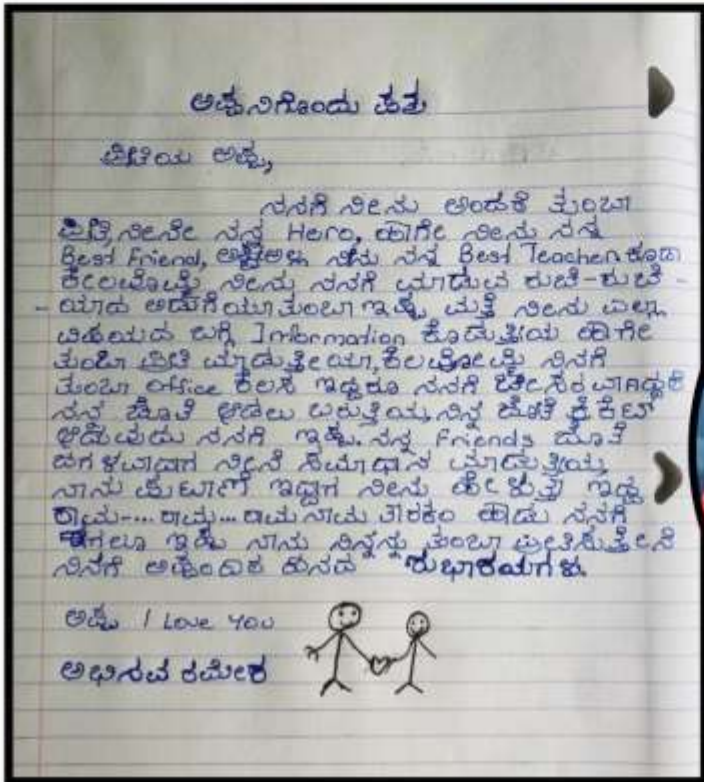 ಅಪ್ಪನಿಗೊಂದು ಪತ್ರ
ಪ್ರೀತಿಯ ಅಪ್ಪ,
ನನಗೆ ನೀನು ಅಂದರೆ ತುಂಬಾ
ನೀನೇ ನನ್ನ Hero, ಹಾಗೇ ನೀನು ನನ್ನ
Best Friend, ಅಷ್ಟೇಅಲ್ಲ ನೀನು ನನ್ನ Best Teacher ಕೂಡಾ
ಕೇಲವೊಮ್ಮೆ ನೀನು ನನಗೆ ಮಾಡುವ ರುಚಿ-ರುಚಿ -
- ಯಾದ ಅಡುಗೆಯೂ ತುಂಬಾ ಇಷ್ಟ ಮತ್ತೆ ನೀನು ಎಲ್ಲಾ
ವಿಷಯದ ಬಗ್ಗೆ Information ಕೊಡುತ್ತೀಯ ಹಾಗೇ
ತುಂಬಾ ಪ್ರೀತಿ ಮಾಡುತ್ತೀಯಾ, ಕೆಲವೋಮ್ಮೆ ನಿನಗೆ
ತುಂಬಾ office ಕೆಲಸ ಇದ್ದರೂ ನನಗೆ ಬೇಸರವಾಗಿದ್ದರೆ
ನನ್ನ ಜೊತೆ ಆಡಲು ಬರುತ್ತಿಯ, ನಿನ್ನ ಜೊತೆ ಕ್ರಿಕೆಟ್
ಆಡುವುದು ನನಗೆ ಇಷ್ಟ. ನನ್ನ Friends ಜೊತೆ
ಜಗಳವಾದಾಗ ನೀನೆ ಸಮಾಧಾನ ಮಾಡುತ್ತೀಯ
ನಾನು ಪುಟಾಣಿ ಇದ್ದಾಗ ನೀನು ಹೇಳುತ್ತಾ ಇದ್ದ
ರಾಮ-... ರಾಮ... ರಾಮ ನಾಮ ತಾರಕಂ ಹಾಡು ನನಗೆ
ಈಗಲೂ ಇಷ್ಟ ನಾನು ನಿನ್ನನ್ನು ತುಂಬಾ ಪ್ರೀತಿಸುತ್ತೇನೆ
ನಿನಗೆ ಅಪ್ಪಂದಿರ ದಿನದ ಶುಭಾಶಯಗಳು.
ಅಪ್ಪ I Love You
ಅಭಿನವ ರಮೇಶ